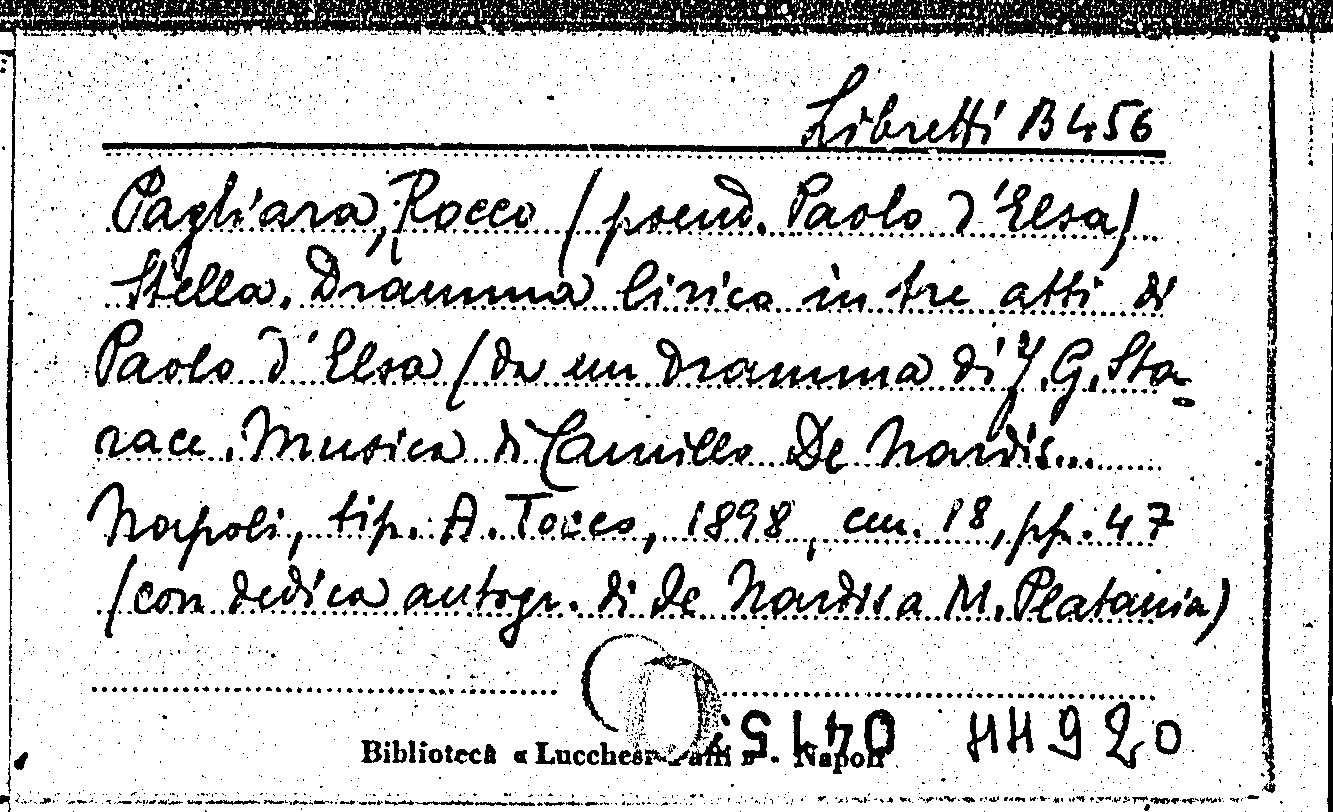 Libretti B 456
Pagliara, Rocco (pseud. Paolo d'Elsa)
Stella. Dramma lirico in tre atti di
Paolo d'Elsa (da un dramma di J. G. Sta-
race. Musica di Camillo De Nardis...
Napoli, tip. A. Tocco, 1898, cm. 18, pp. 47
(con dedica autogr. di De Nardis a M. Platania)
44920
Biblioteca « Lucchesi - Palli » - Napoli